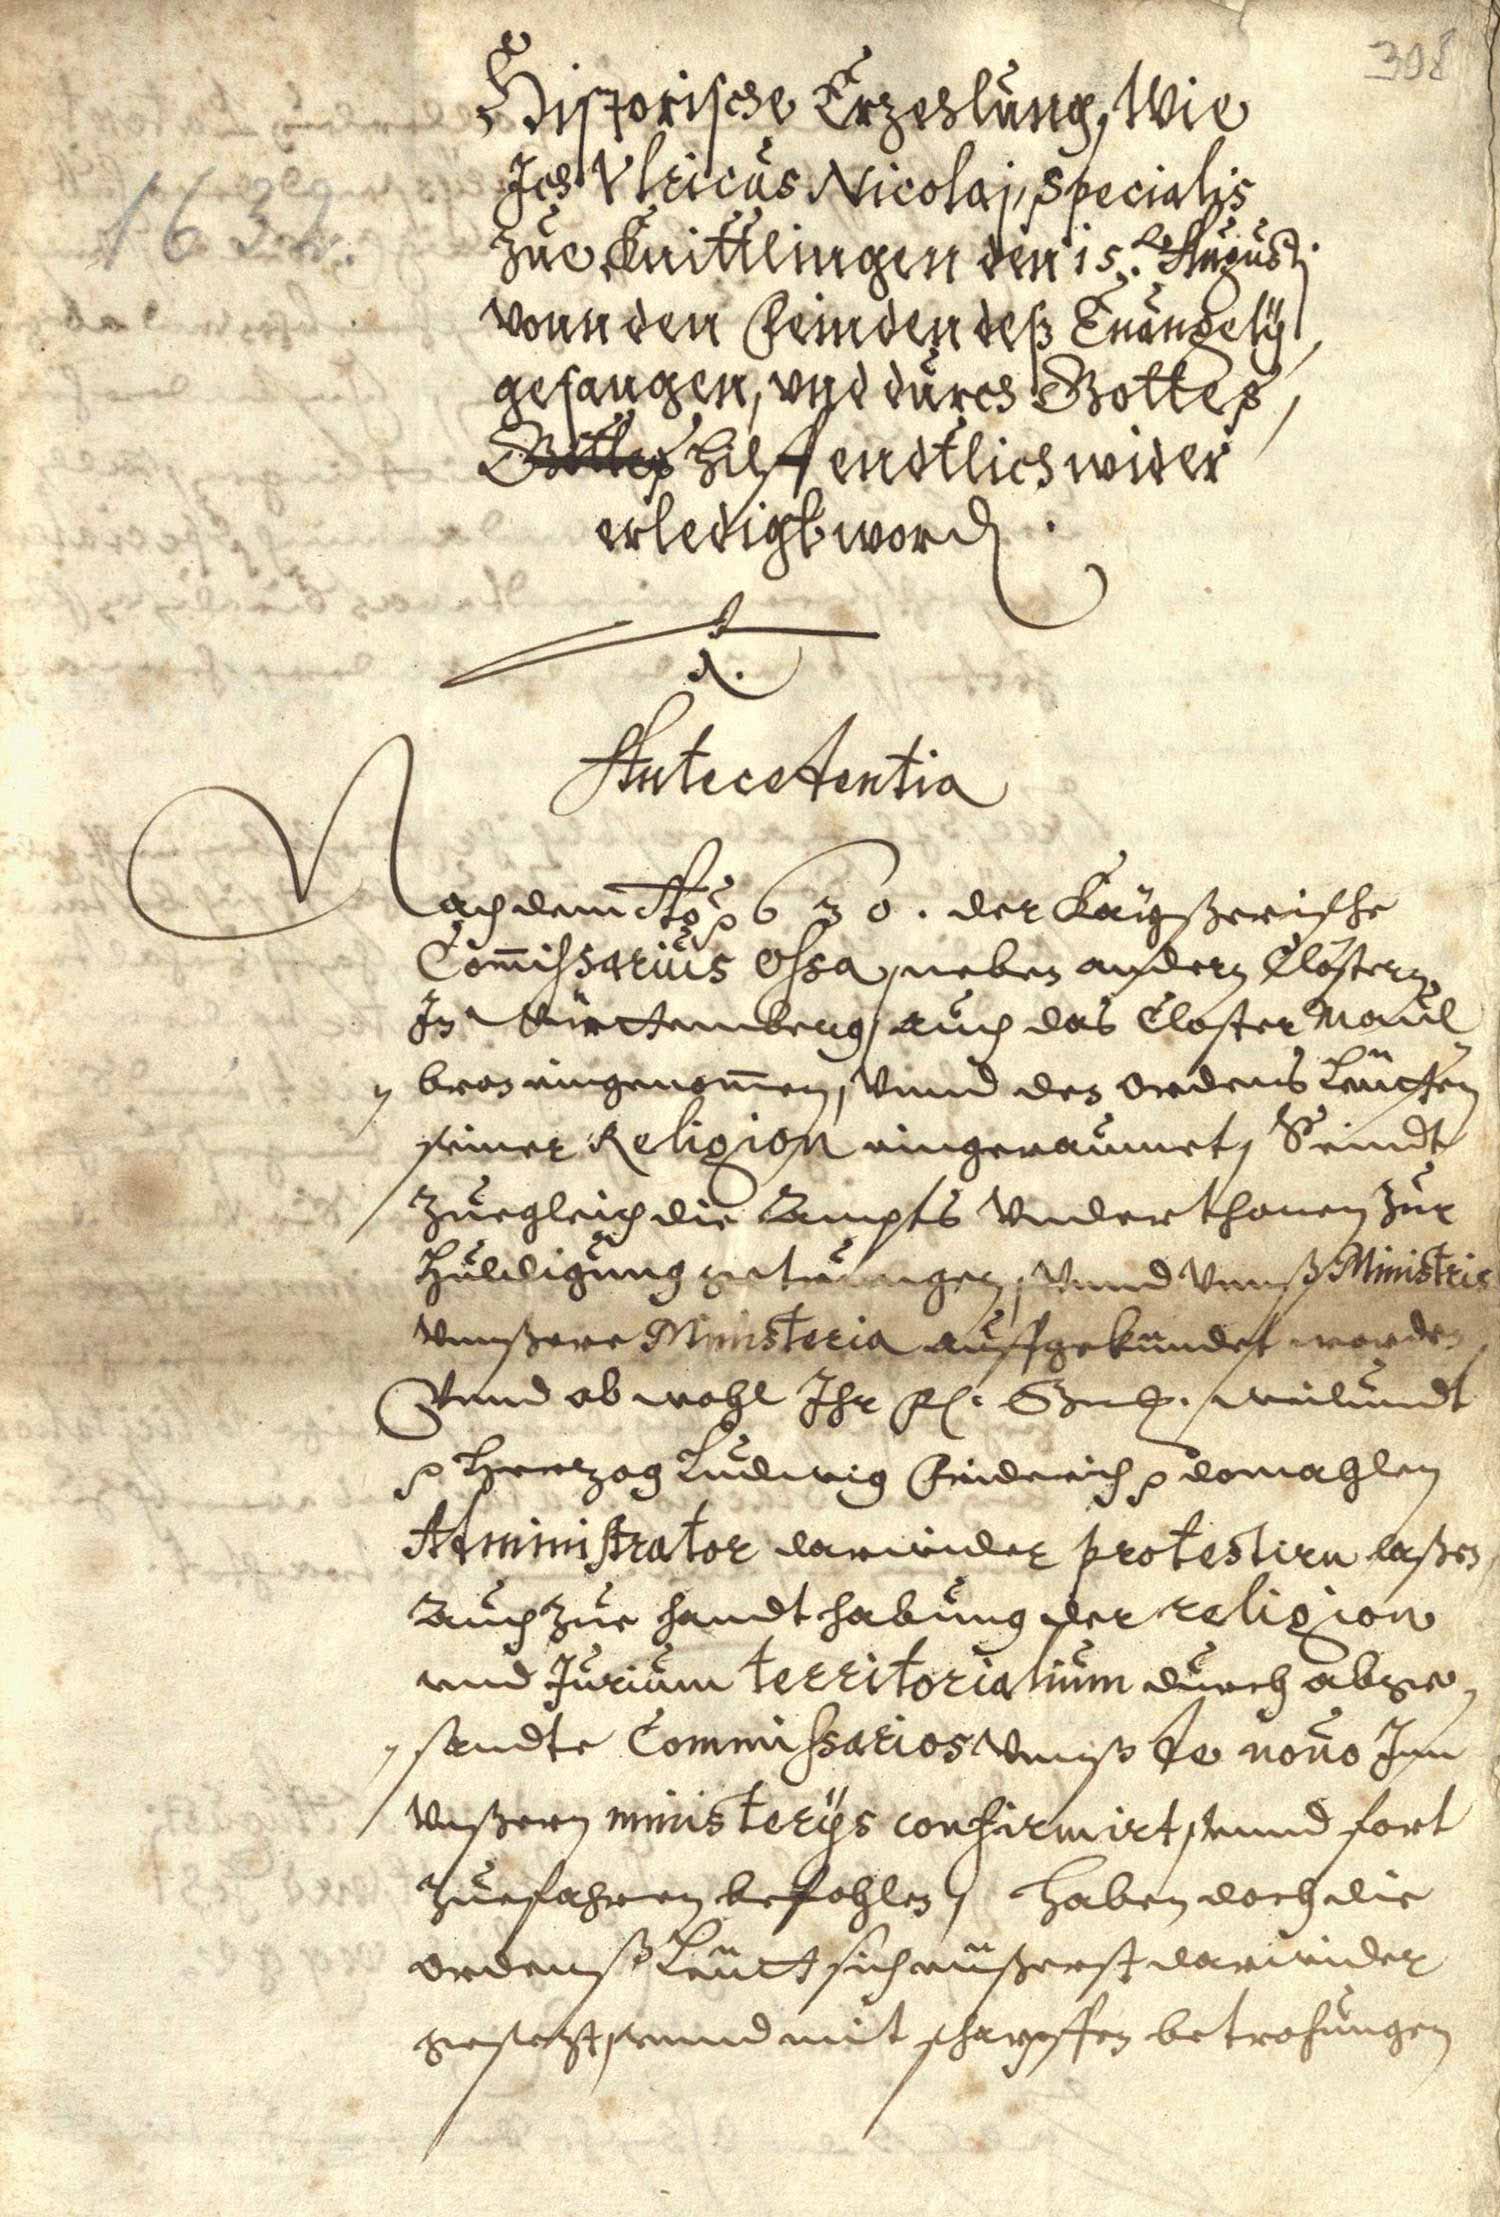 308
Historische Erzehlung, Wie
Ich Vlricus Nicolaj, Specialis
zue Knittlingen den 15. Augustj
vonn den Feinden deß Euangelÿ
gefangen, vnd durch Gottes
Gottes hilff endtlich wider
erledigt word
1632.
A.
Antecedentia
Nachdem Ao 1630. der Kaÿßerische
Com̅issarius Ossa, neben andern Clöstern
In Württemberg, auch das Closter Maul
bron eingenom̅en, Vnnd den ordens Leütten
seiner Religion eingeraumet, Seindt
Zuegleich die Ampts Vnderthonen Zur
Huldigung getrungen, Vnnd Vnnß Ministris
Vnnßere Ministeria auffgekündet worden
Vnnd ob wohl Ihr Fl. Gn. weilundt
Hertzog Ludwig Friderich domahlen
Administrator darwider protestirn laßen
Auch Zue handthabung der religion
und Jurium territorialium durch abge
sandte Commissarios Vnnß de nouo Inn
Vnßern ministerÿs confirmirt, Vnnd fort
Zuefahren befohlen, Haben doch die
ordenß Leütt sich eüßerst darwider
gesetzt, Vnnd mit scharpffen betrohungen